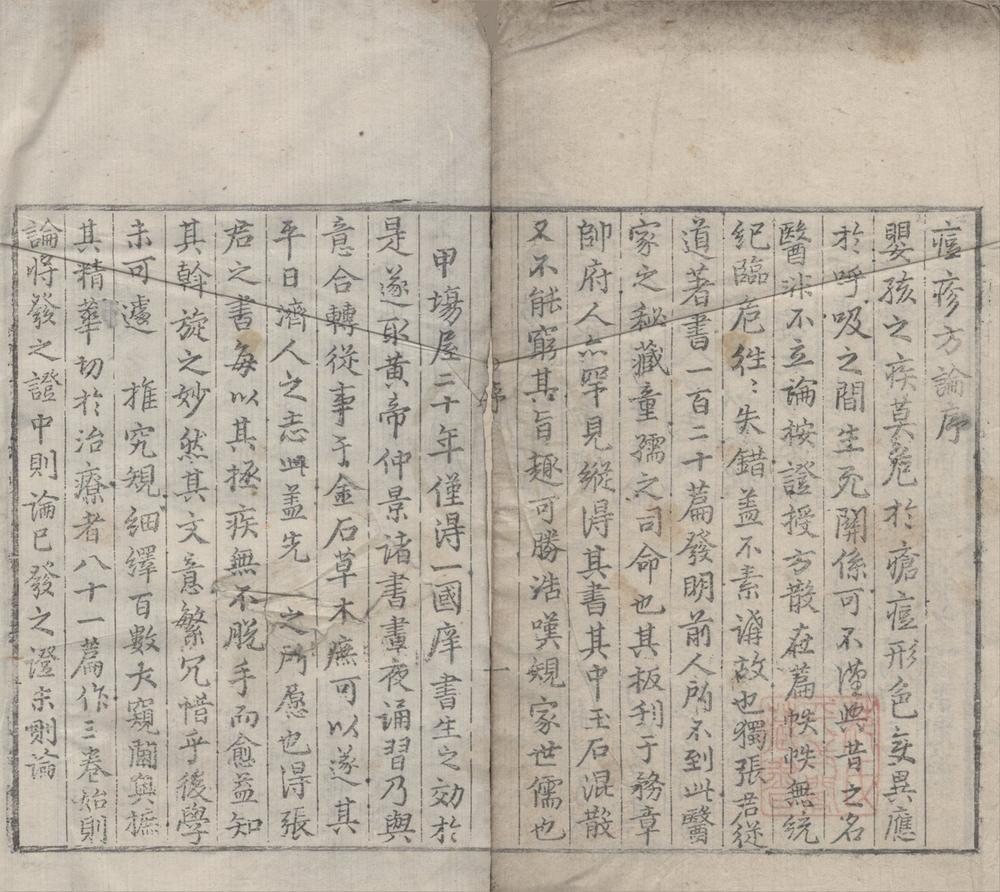 痘疹方論序
嬰孩之疾莫危於瘡痘形色變異應
於呼吸之間生死關係可不謹與昔之名
醫罔不立論按證授方散在篇帙帙無統
紀臨危徃〻失錯盖不素講故也獨張君從
道著書一百二十篇發明前人所不到此醫
家之秘藏童孺之司命也其板刋于務章
帥府人亦罕見縱得其書其中玉石混散
又不能窮其旨趣可勝浩嘆䂓家世儒也
序
一
甲塲屋二十年僅得一國庠書生之効於
是遂取黄帝仲景诸書晝夜誦習乃與
意合轉從事于金石草木庶可以遂其
平日濟人之志與盖先 之所愿也得張
君之書每以其拯疾無不脱手而愈益知
其斡旋之妙然其文意繁冗惜乎後學
未可遽 推究䂓細繹百數大窺閫奥摭
其精華切於治療者八十一篇作三卷始則
論將發之證中則論已發之證末則論